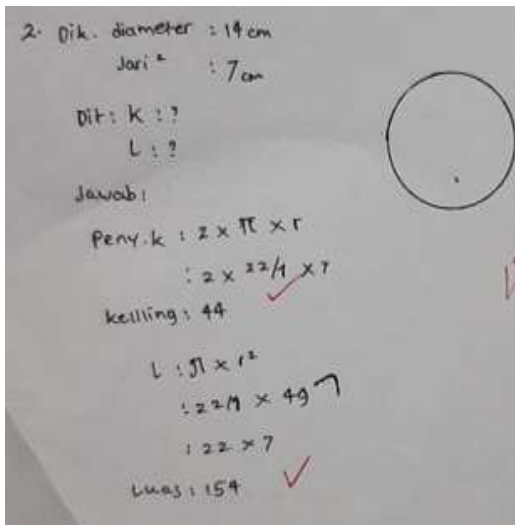 2. Dik. diameter : 14 cm
Jari² : 7 cm
Dit : k : ?
L : ?
Jawab :
Peny. k : 2 × π × r
: 2 × 22/7 × 7
kellling : 44
L : π × r²
: 22/7 × 49 7
: 22 × 7
Luas : 154